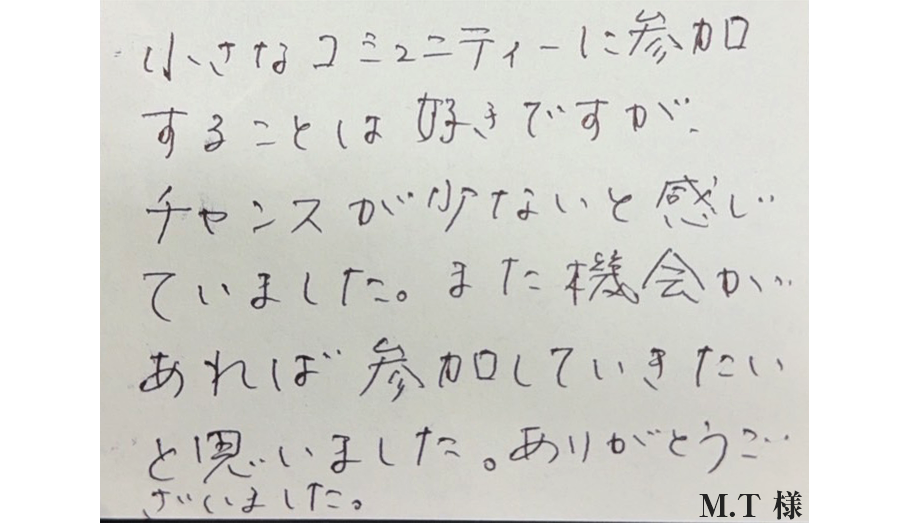 小さなコミュニティーに参加
することは好きですが、
チャンスが少ないと感じ
ていました。また機会が
あれば参加していきたい
と思いました。ありがとうご
ざいました。
M.T 様